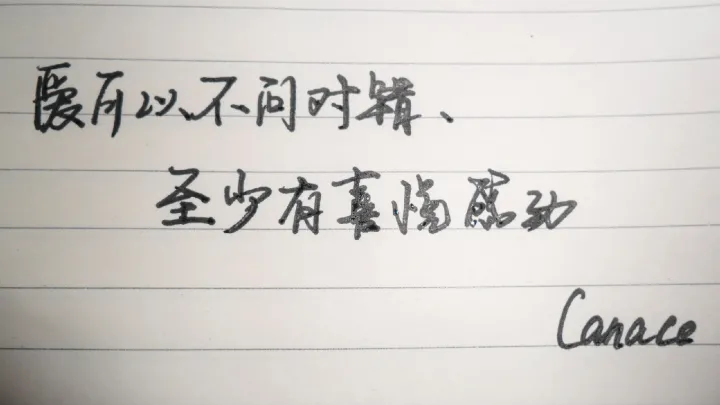 爱可以不问对错、
至少有喜悦感动
Canace